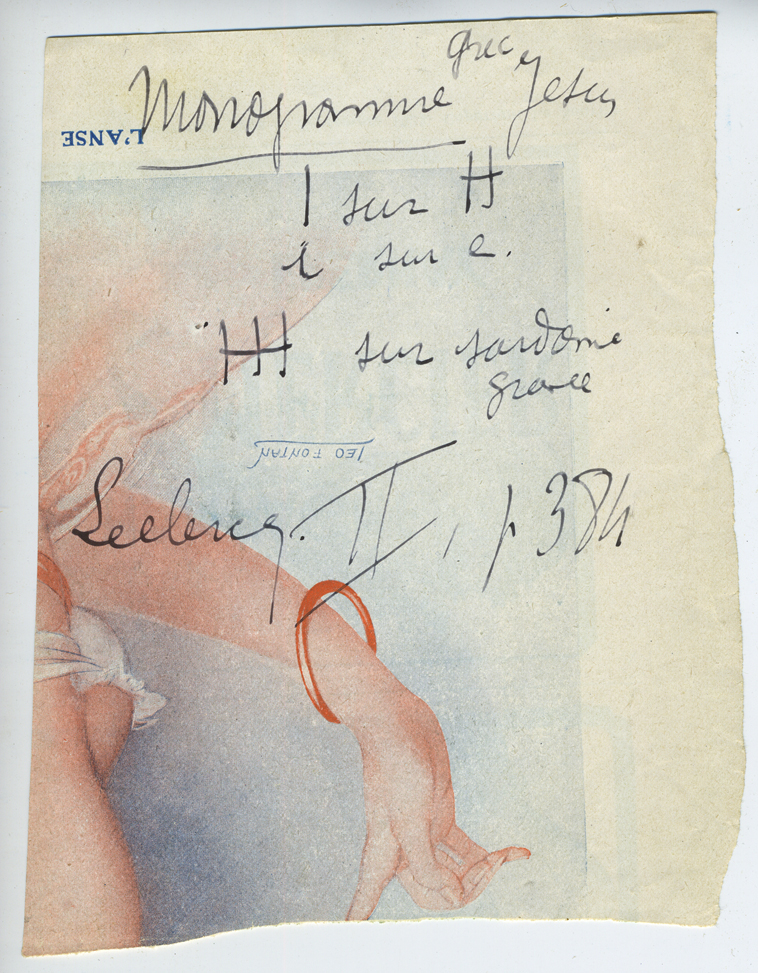 grec
Monogramme Jesus
L'ANSE
I sur H
i sur e.
IHI sur sardoine
gravee
LEO FONTAN
Leclercq. II, p 384